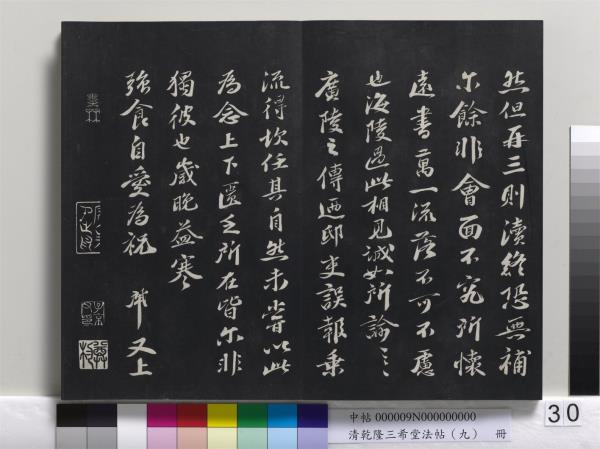 然但再三則瀆終恐無補
尓餘非會面不究所懷
遠書萬一流落不可不慮
也海陵遇此相見誠如所論云云
廣陵之傳迺邸吏誤報乗
流得坎任其自然未嘗以此
為念上下匱乏所在皆尓非
獨彼也歲晚益寒
強食自愛為祝 又上
中帖 000009N000000000
清乾隆三希堂法帖（九） 冊
30